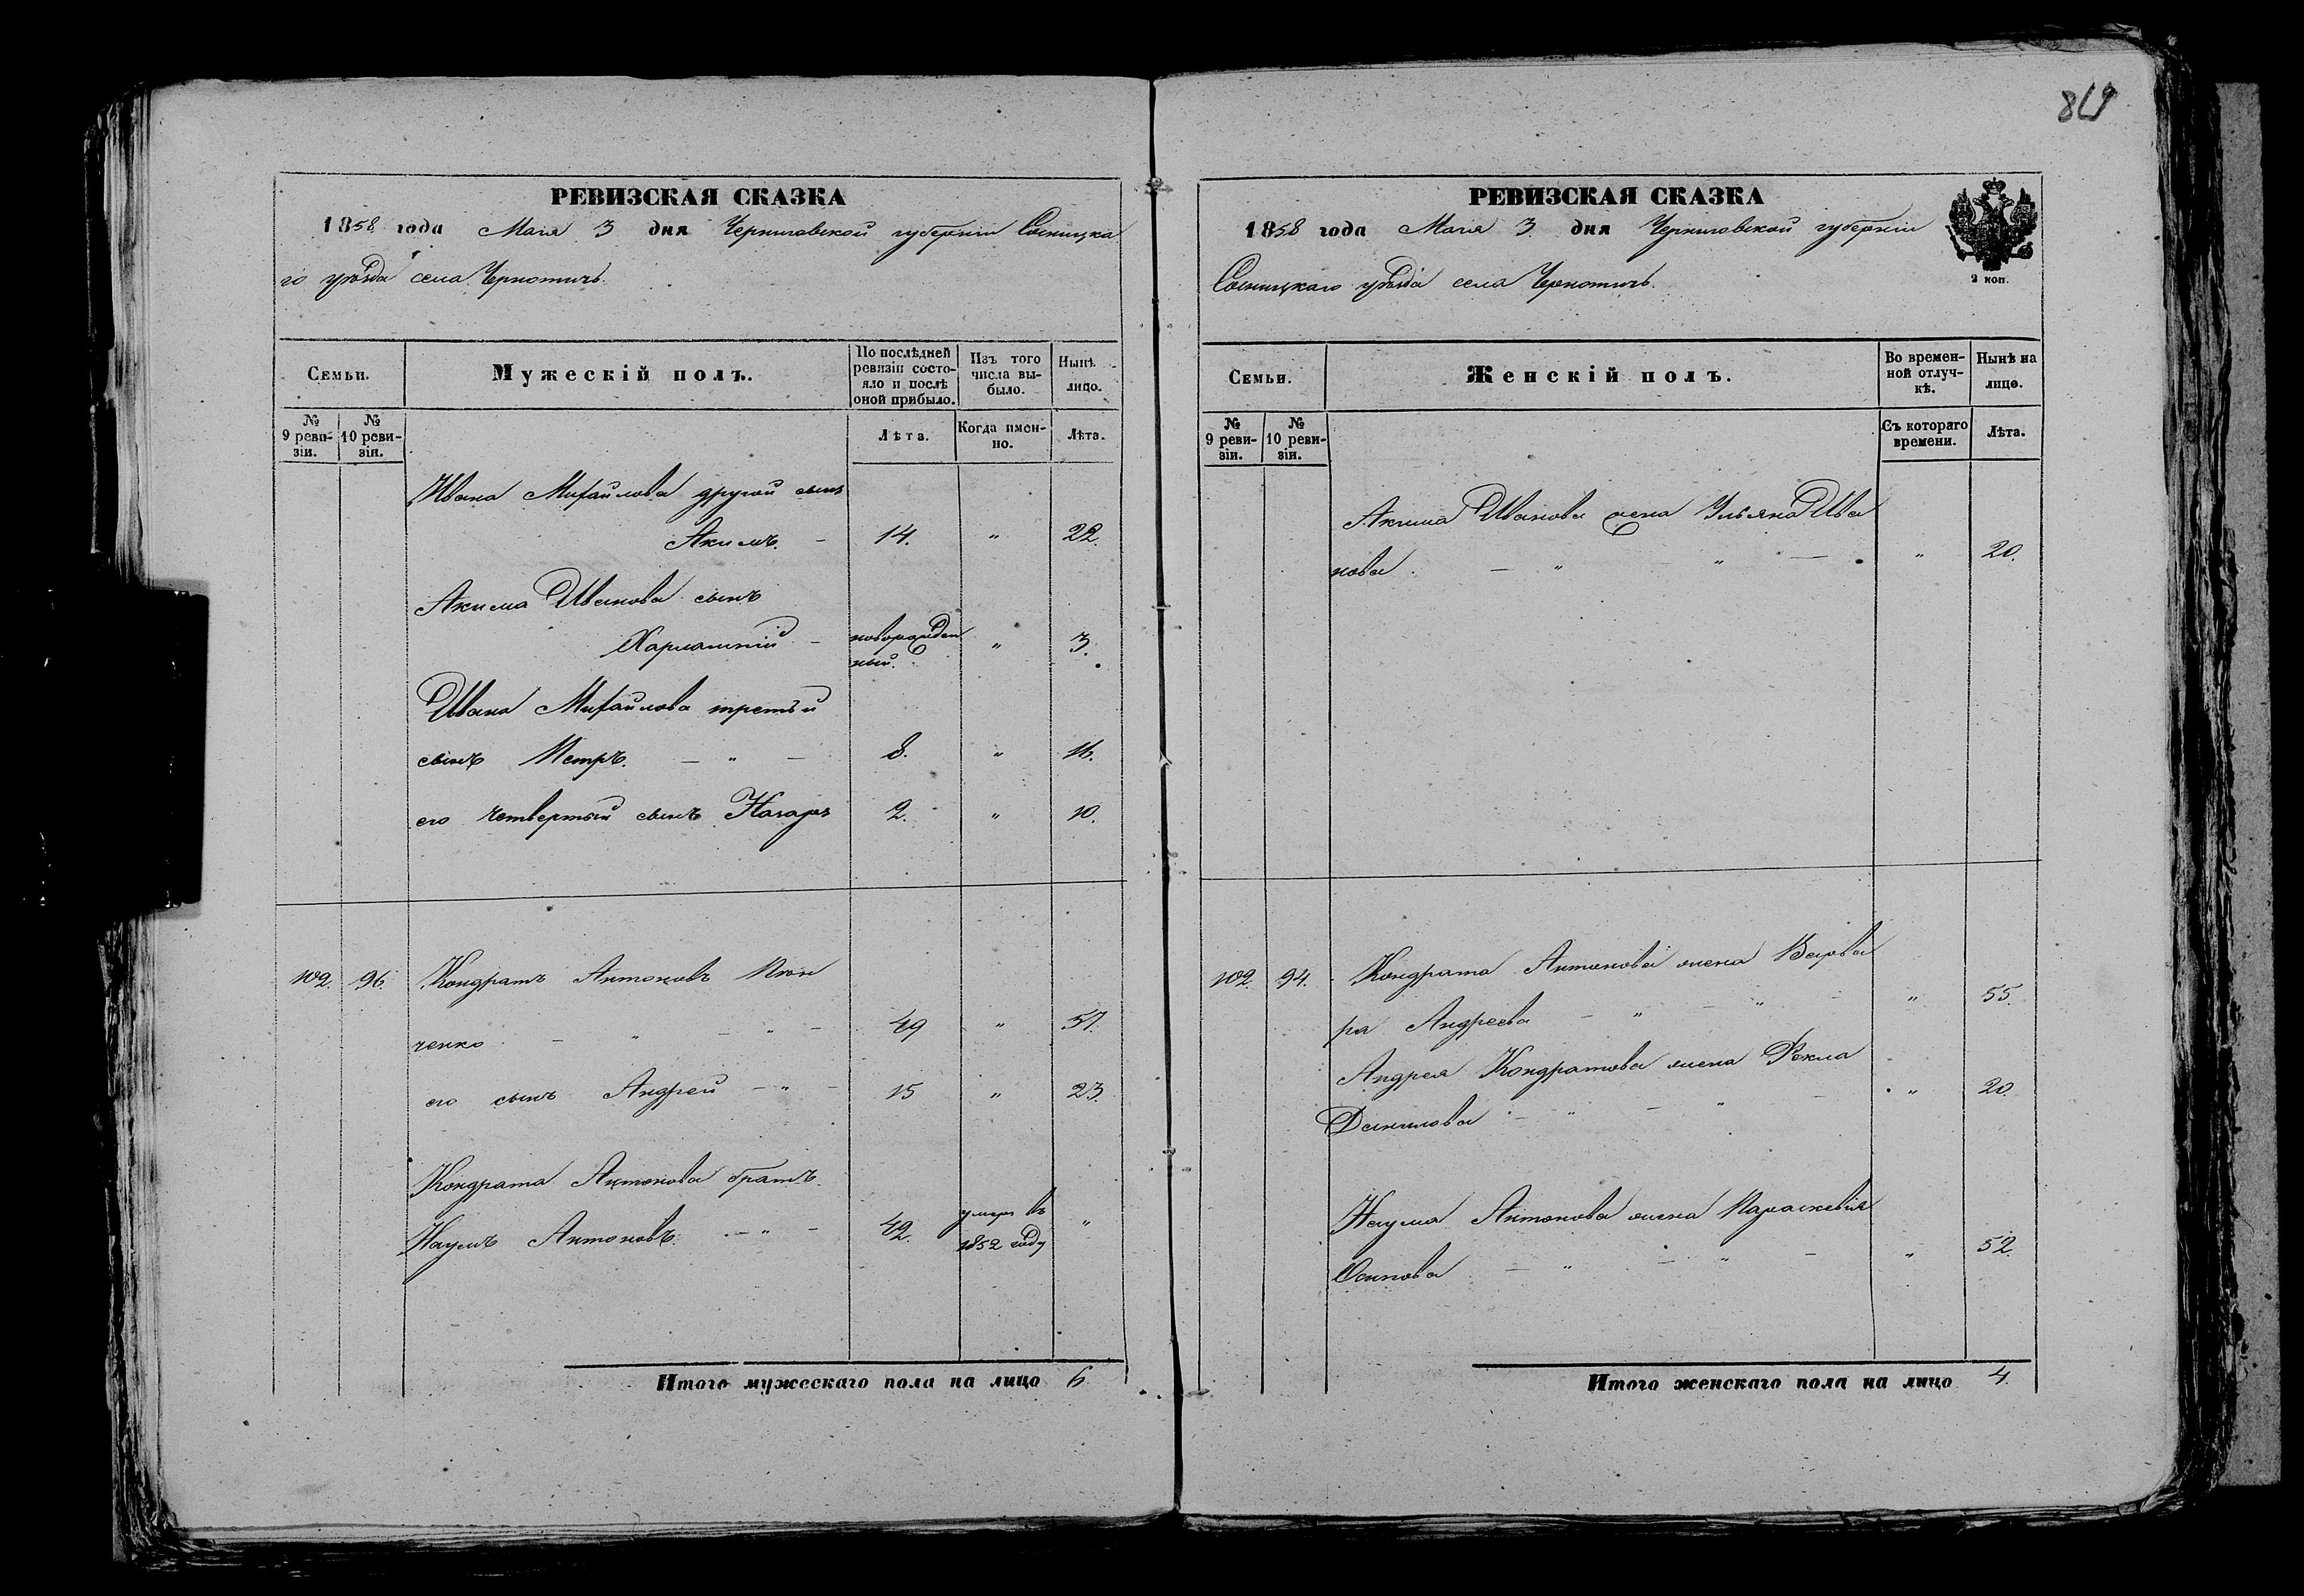 869
РЕВИЗСКАЯ СКАЗКА
1858 года Мая 3 дня Черниговской губернии Сосницка
го уѣзда села Чернотичъ.
Семьи.
Мужескій полъ.
По послѣдней
ревизіи состо-
яло и послѣ
оной прибыло.
Изъ того
числа вы-
было.
Нынѣ
лицо.
№
9 реви-
зіи.
№
10 реви-
зіи.
Лѣта.
Когда имен-
но.
Лѣта.
Ивана Михайлова другой сынъ
Акимъ. - 14. " 22.
Акима Иванова сынъ
Харлампій - новорожден " 3.
ный.
Ивана Михайлова третьи
сынъ Петръ. — " — 8. " 16.
его четвертый сынъ Назаръ 2. " 10.
102. 96. Кондратъ Антоновъ
ченко - " - " - 49 " 57.
его сынъ Андрей - " - 15 " 23.
Кондрата Антонова братъ.
Наумъ Антоновъ. - " - 42. умеръ въ "
1852 году
Итого мужескаго пола на лицо 6
РЕВИЗСКАЯ СКАЗКА
1858 года Мая 3. дня Черниговской губерніи
Сосницкаго уѣзда села Чернотичъ.
2 коп.
Семьи.
Женскій полъ.
Во времен-
ной отлуч-
кѣ.
Нынѣ на
лицо.
№
9 реви-
зіи.
№
10 реви-
зіи.
Съ котораго
времени.
Лѣта.
Акима Иванова жена Ульяна Ива
нова. — " — " — " 20.
102. 94. Кондрата Антонова жена Варва
ра Андреева - " - " - " 55.
Андрея Кондратова жена Фекла
Данилова - " - " - " 20.
Наума Антонова жена Параскевія
Осипова - " - " - " 52.
Итого женскаго пола на лицо 4.